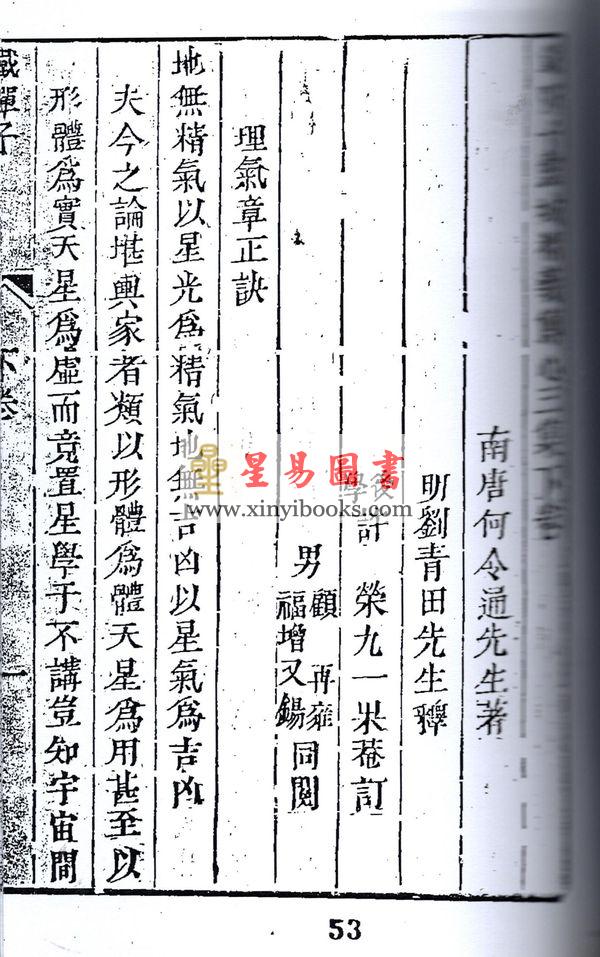 三集下卷
南唐何令通先生著
明劉青田先生釋
後學許榮九一米菴訂
男顧再雍福增又錫同閱
理氣章正訣
地無精氣以星光爲精氣地無吉凶以星氣爲吉凶
夫今之論堪輿家者類以形體爲體天星爲用甚至以
形體爲實天星爲虛而竟置星學于不講豈知宇宙間
鐵彈子
下卷
一
星易圖書
www.xinyibooks.com
53